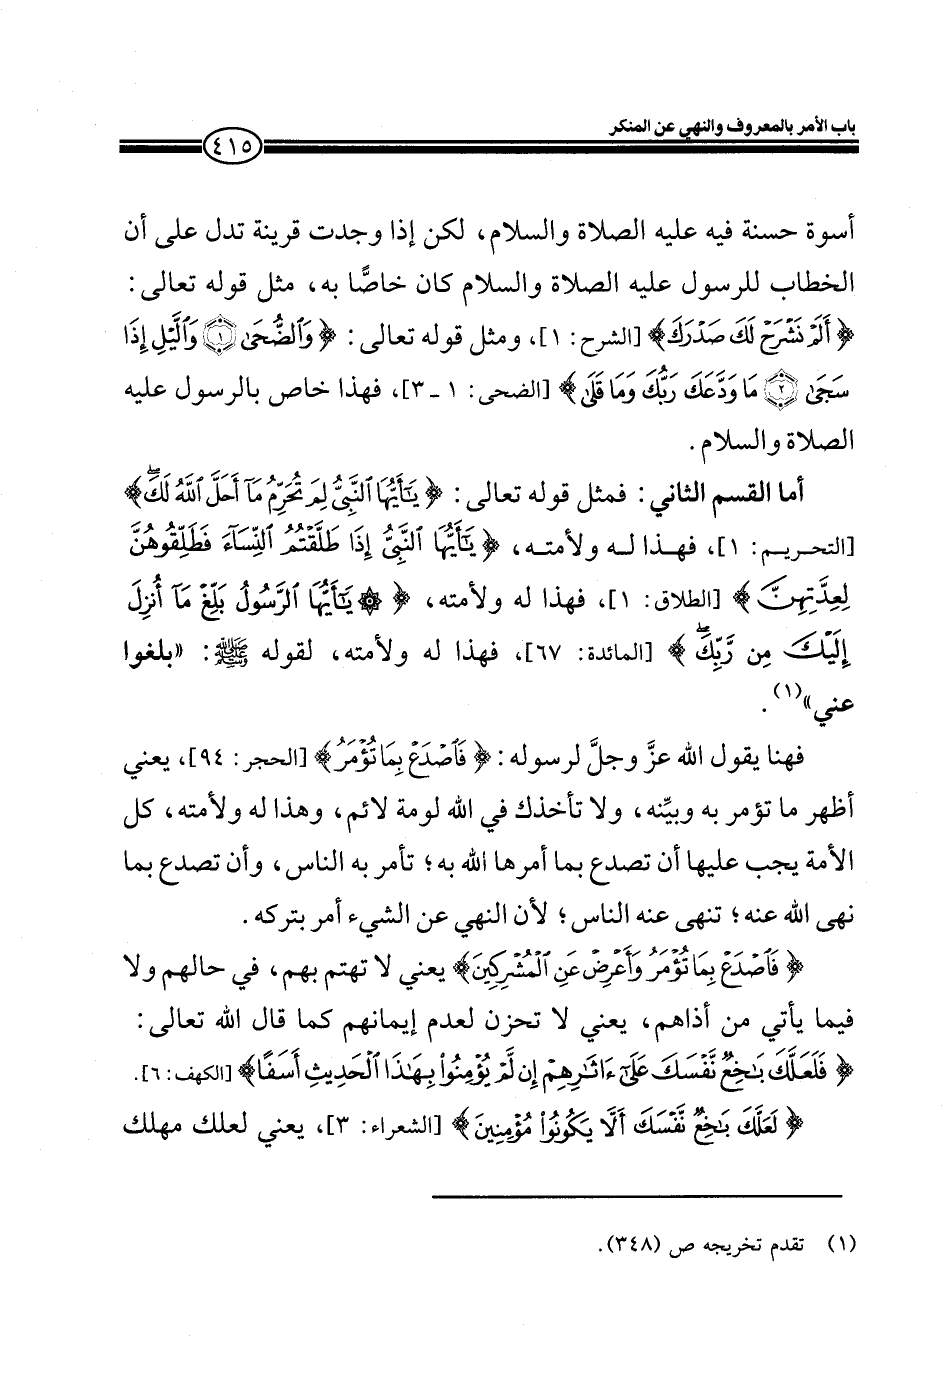 باب الأمر بالمعروف والنهي عن المنكر
٤١٥
أسوة حسنة فيه عليه الصلاة والسلام، لكن إذا وجدت قرينة تدل على أن
الخطاب للرسول عليه الصلاة والسلام كان خاصًّا به، مثل قوله تعالى:
﴿أَلَمْ نَشْرَحْ لَكَ صَدْرَكَ﴾ [الشرح: ١]، ومثل قوله تعالى: ﴿وَٱلضُّحَىٰ ۝١ وَٱلَّيْلِ إِذَا
سَجَىٰ ۝٢ مَا وَدَّعَكَ رَبُّكَ وَمَا قَلَىٰ﴾ [الضحى: ١ ـ ٣]، فهذا خاص بالرسول عليه
الصلاة والسلام.
أما القسم الثاني: فمثل قوله تعالى: ﴿يَٰٓأَيُّهَا ٱلنَّبِيُّ لِمَ تُحَرِّمُ مَآ أَحَلَّ ٱللَّهُ لَكَۖ﴾
[التحريم: ١]، فهذا له ولأمته، ﴿يَٰٓأَيُّهَا ٱلنَّبِيُّ إِذَا طَلَّقْتُمُ ٱلنِّسَآءَ فَطَلِّقُوهُنَّ
لِعِدَّتِهِنَّ﴾ [الطلاق: ١]، فهذا له ولأمته، ﴿۞ يَٰٓأَيُّهَا ٱلرَّسُولُ بَلِّغْ مَآ أُنزِلَ
إِلَيْكَ مِن رَّبِّكَۖ﴾ [المائدة: ٦٧]، فهذا له ولأمته، لقوله ﷺ: «بلغوا
عني»(١).
فهنا يقول الله عزَّ وجلَّ لرسوله: ﴿فَٱصْدَعْ بِمَا تُؤْمَرُ﴾ [الحجر: ٩٤]، يعني
أظهر ما تؤمر به وبيِّنه، ولا تأخذك في الله لومة لائم، وهذا له ولأمته، كل
الأمة يجب عليها أن تصدع بما أمرها الله به؛ تأمر به الناس، وأن تصدع بما
نهى الله عنه؛ تنهى عنه الناس؛ لأن النهي عن الشيء أمر بتركه.
﴿فَٱصْدَعْ بِمَا تُؤْمَرُ وَأَعْرِضْ عَنِ ٱلْمُشْرِكِينَ﴾ يعني لا تهتم بهم، في حالهم ولا
فيما يأتي من أذاهم، يعني لا تحزن لعدم إيمانهم كما قال الله تعالى:
﴿فَلَعَلَّكَ بَٰخِعٌ نَّفْسَكَ عَلَىٰٓ ءَاثَٰرِهِمْ إِن لَّمْ يُؤْمِنُوا۟ بِهَٰذَا ٱلْحَدِيثِ أَسَفًا﴾ [الكهف: ٦].
﴿لَعَلَّكَ بَٰخِعٌ نَّفْسَكَ أَلَّا يَكُونُوا۟ مُؤْمِنِينَ﴾ [الشعراء: ٣]، يعني لعلك مهلك
(١) تقدم تخريجه ص (٣٤٨).